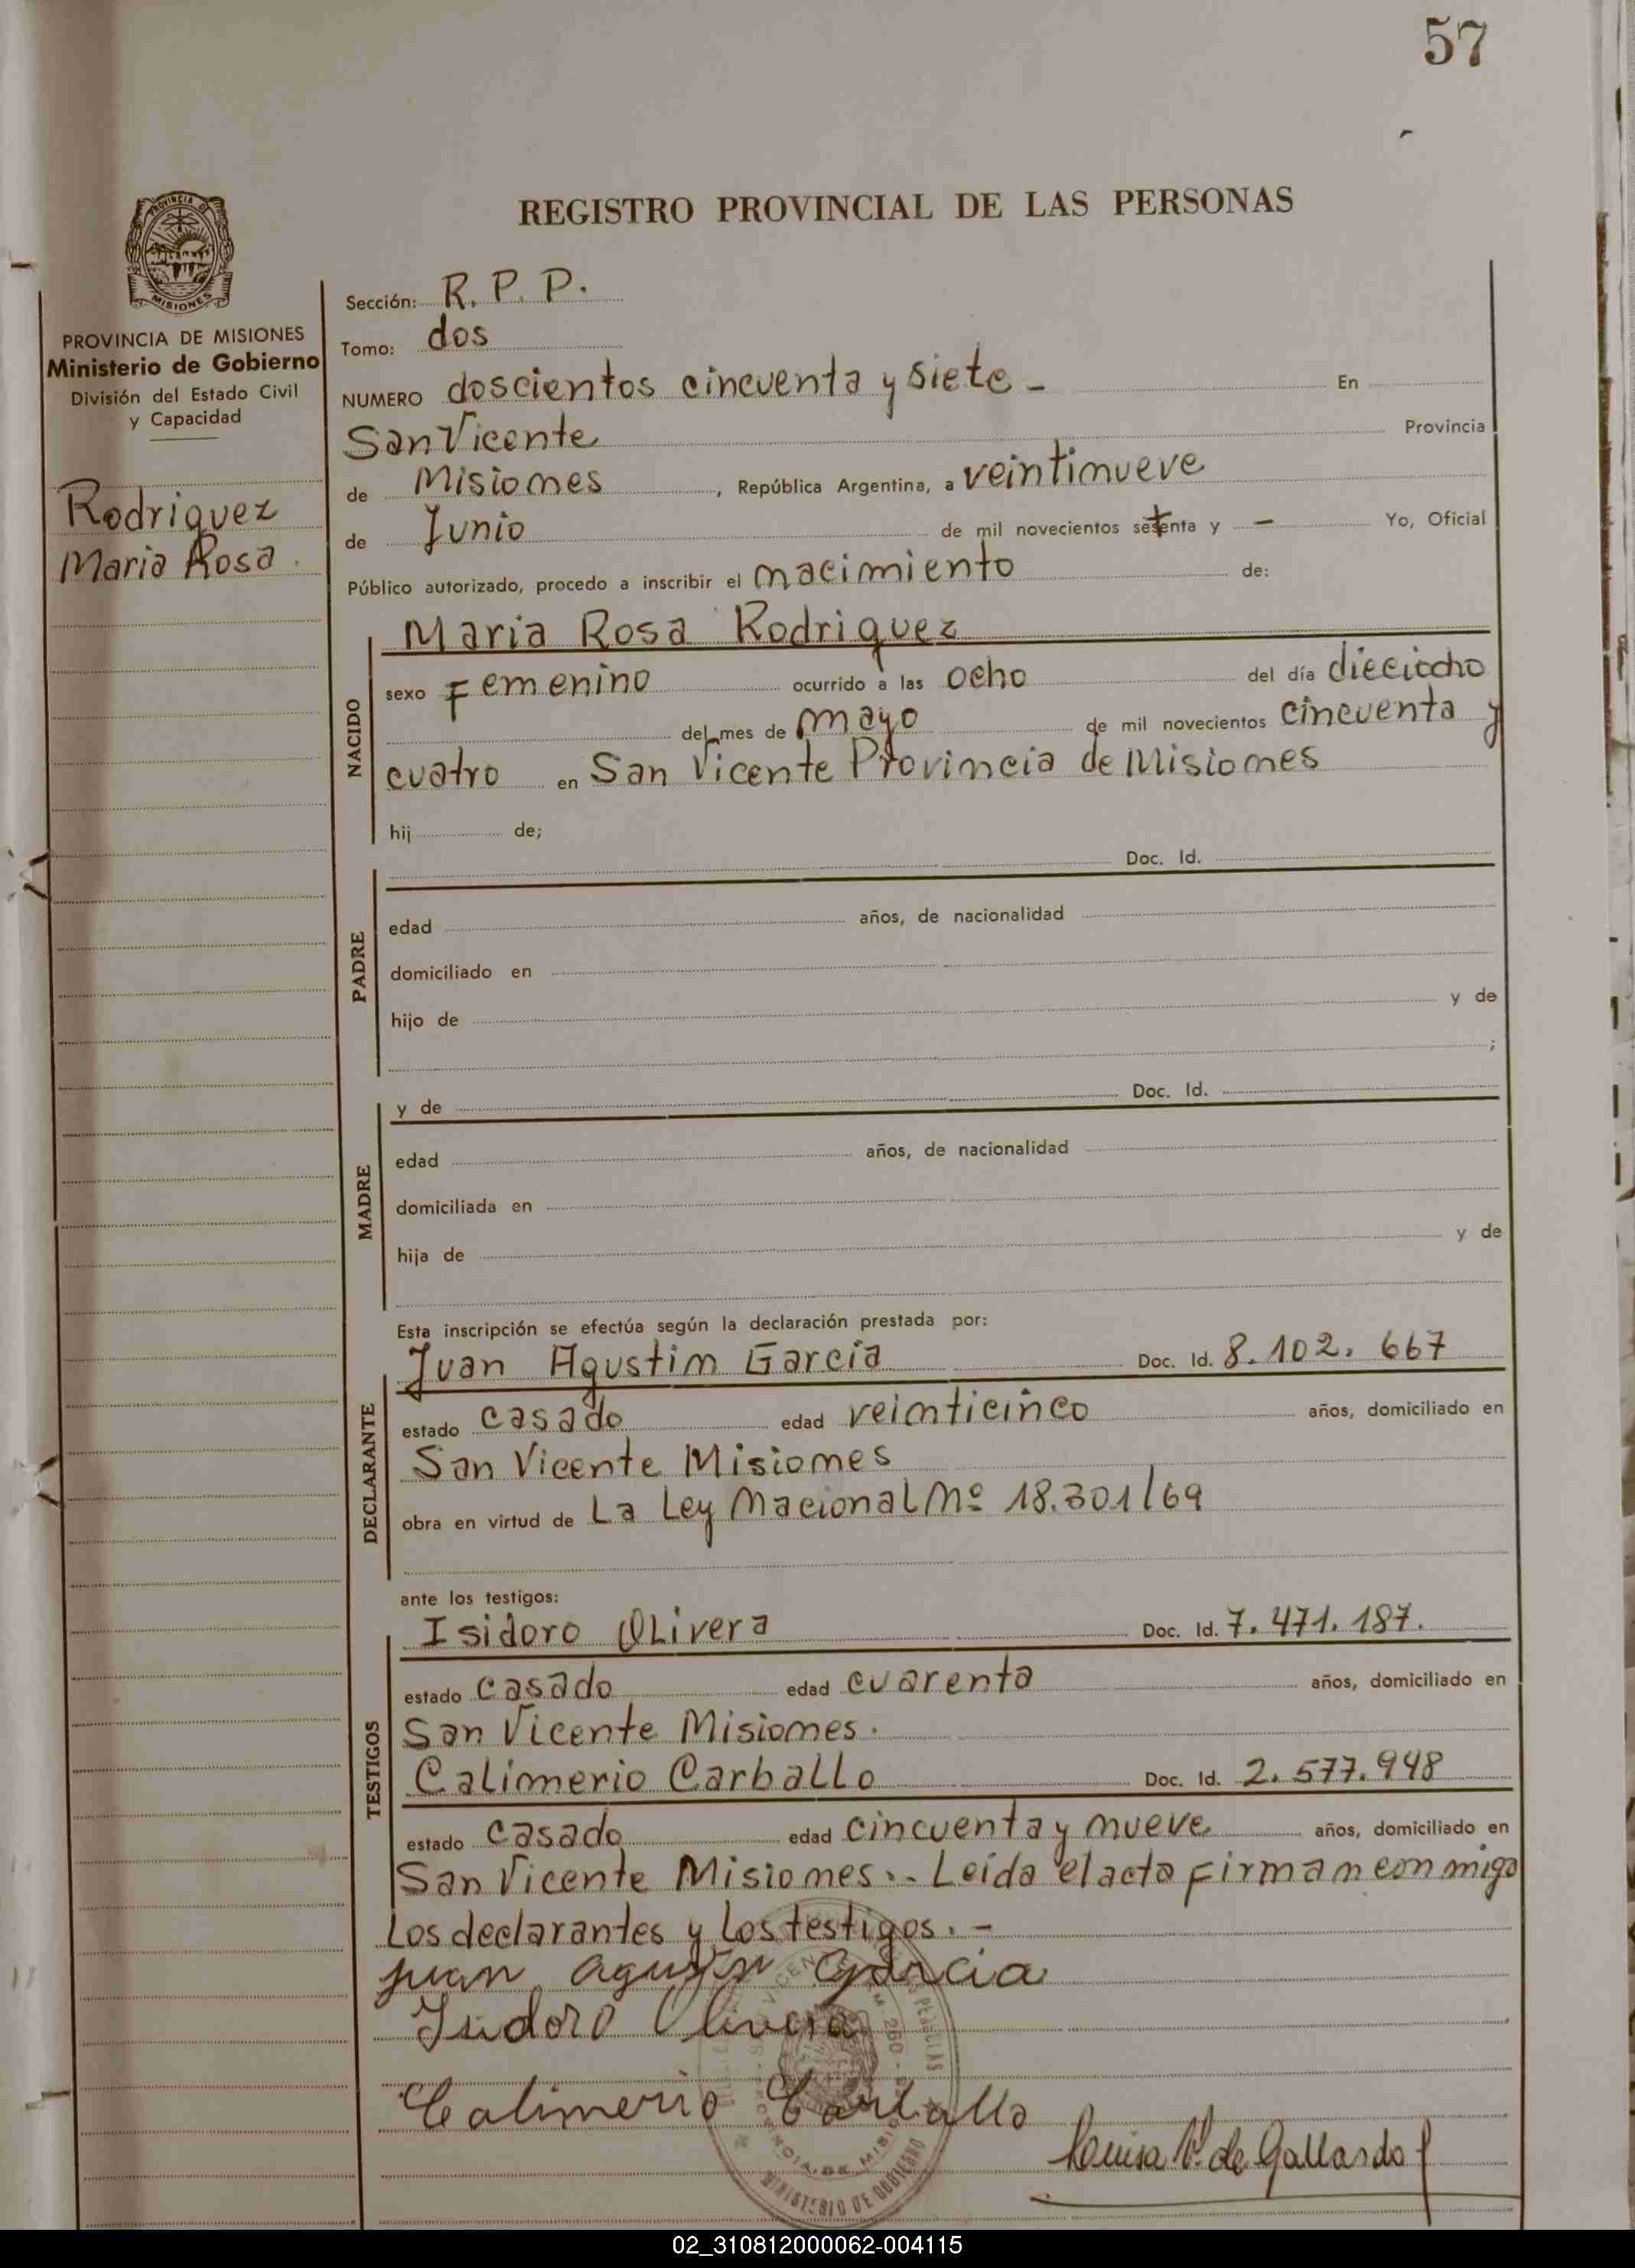 57
REGISTRO PROVINCIAL DE LAS PERSONAS
PROVINCIA DE
MISIONES
PROVINCIA DE MISIONES
Ministerio de Gobierno
División del Estado Civil
y Capacidad
Rodriguez
Maria Rosa.
Sección: R. P. P.
Tomo: dos
NUMERO doscientos cincuenta y siete - En
San Vicente Provincia
de Misiones, República Argentina, a veintinueve
de Junio de mil novecientos setenta y - Yo, Oficial
Público autorizado, procedo a inscribir el nacimiento de:
NACIDO
Maria Rosa Rodriguez
sexo Femenino ocurrido a las ocho del día dieciocho
del mes de mayo de mil novecientos cincuenta y
cuatro en San Vicente Provincia de Misiones
hij de;
PADRE
Doc. Id.
edad años, de nacionalidad
domiciliado en
hijo de y de
;
MADRE
y de Doc. Id.
edad años, de nacionalidad
domiciliada en
hija de y de
Esta inscripción se efectúa según la declaración prestada por:
DECLARANTE
Juan Agustin Garcia Doc. Id. 8.102.667
estado casado edad veinticinco años, domiciliado en
San Vicente Misiones
obra en virtud de La Ley Nacional Nº 18.301/69
ante los testigos:
TESTIGOS
Isidoro Olivera Doc. Id. 7.471.187.
estado casado edad cuarenta años, domiciliado en
San Vicente Misiones.
Calimerio Carballo Doc. Id. 2.577.948
estado casado edad cincuenta y nueve años, domiciliado en
San Vicente Misiones.- Leida el acta firman conmigo
Los declarantes y Los testigos.-
Juan agustin Garcia
Isidoro Olivera
Calimerio Carballo
Louisa V. de Gallardo
MINISTERIO DE GOBIERNO
02_310812000062-004115